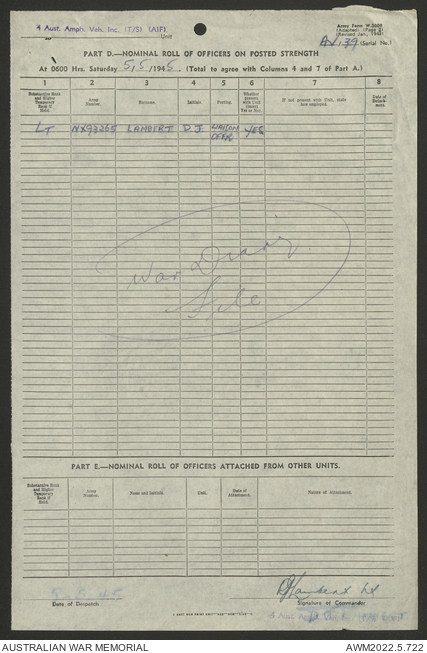 4 Aust. Amph. Veh. Inc. (T/S) (AIF)
Unit
Army Form W.3008
(Adapted) (Page 2)
(Revised Jan., 1945)
AV/39 (Serial No.)
PART D.—NOMINAL ROLL OF OFFICERS ON POSTED STRENGTH
At 0600 Hrs. Saturday 5/5/1945. (Total to agree with Columns 4 and 7 of Part A.)
1 2 3 4 5 6 7 8
Substantive Rank and Higher Temporary Rank if Held.
Army Number.
Surname.
Initials.
Posting.
Whether present with Unit (Insert Yes or No).
If not present with Unit, state how employed.
Date of Detachment.
LT NX93265 LAMBERT D J LIAISON OFFR YES
War Diary
File
PART E.—NOMINAL ROLL OF OFFICERS ATTACHED FROM OTHER UNITS.
Substantive Rank and Higher Temporary Rank if Held.
Army Number.
Name and Initials.
Unit.
Date of Attachment.
Nature of Attachment.
5.5.45
Date of Despatch
DJ Lambert Lt
Signature of Commander
AUSTRALIAN WAR MEMORIAL
AWM2022.5.722